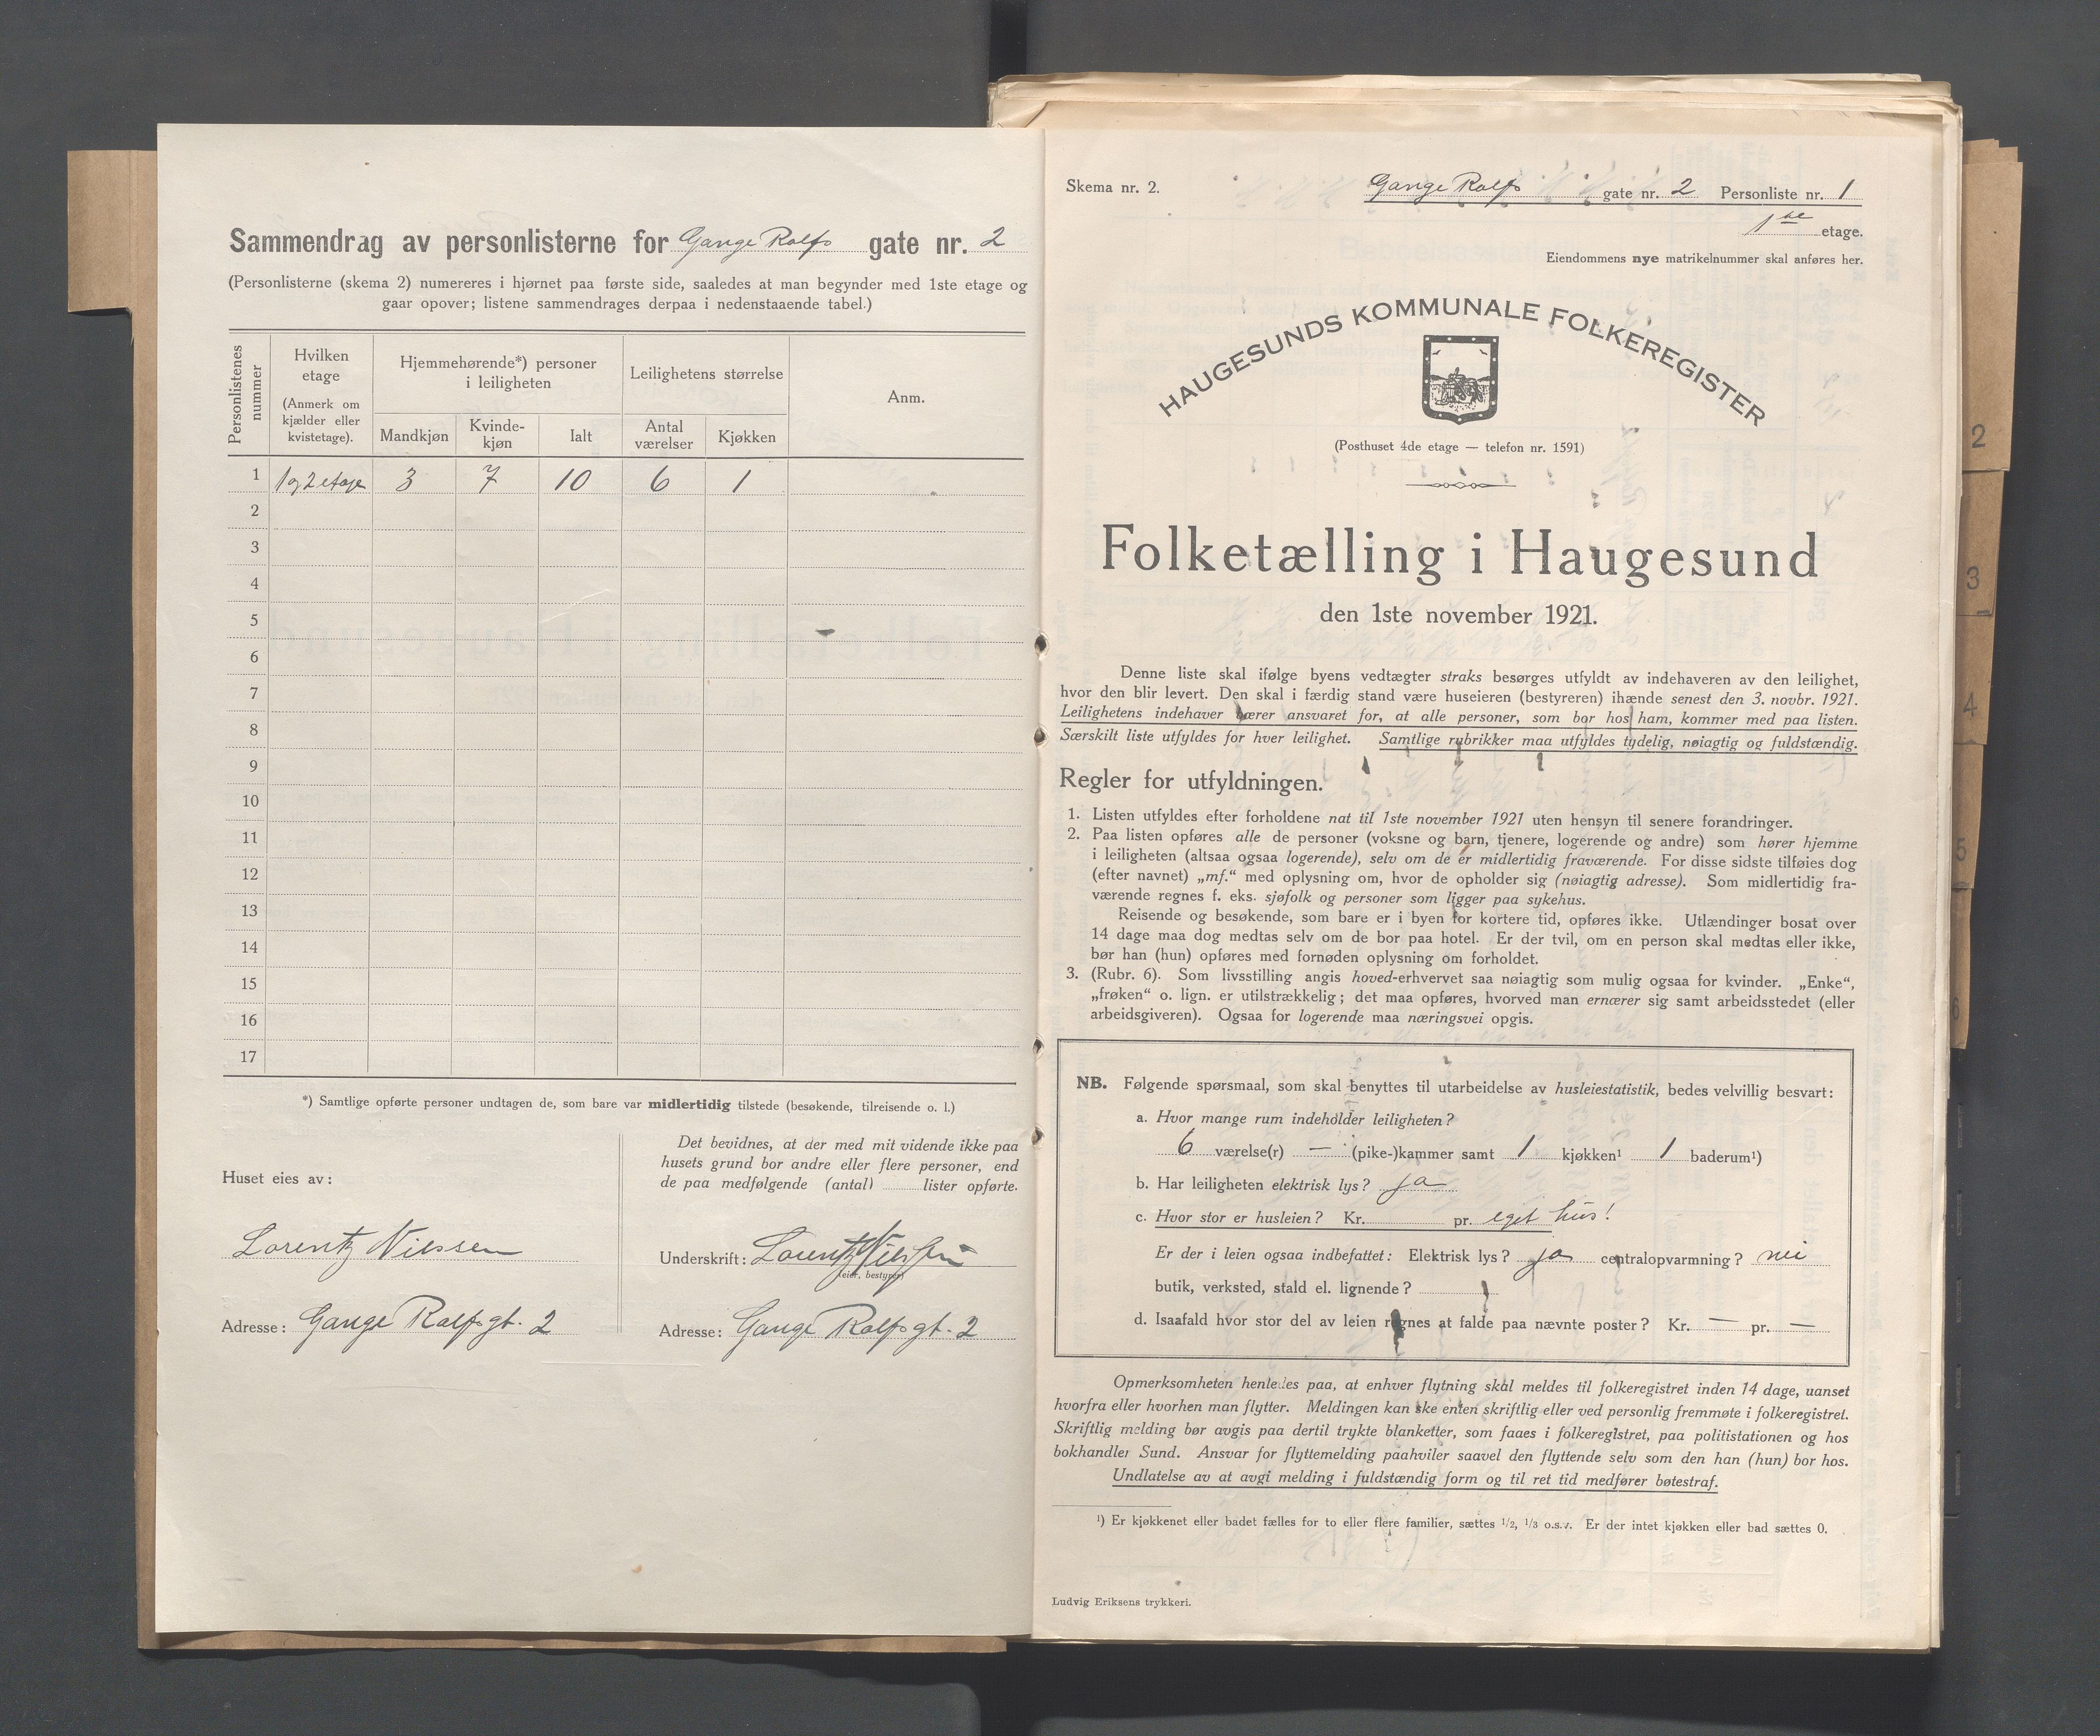 Sammendrag av personlisterne for Gange Rolfs gate nr. 2
(Personlisterne (skema 2) numereres i hjørnet paa første side, saaledes at man begynder med 1ste etage og
gaar opover; listene sammendrages derpaa i nedenstaaende tabel.)
Personlistenes nummer
Hvilken etage
(Anmerk om kjælder eller kvistetage).
Hjemmehørende*) personer i leiligheten
Leilighetens størrelse
Anm.
Mandkjøn
Kvinde-kjøn
Ialt
Antal værelser
Kjøkken
1 1 og 2 etage 3 7 10 6 1
2
3
4
5
6
7
8
9
10
11
12
13
14
15
16
17
*) Samtlige opførte personer undtagen de, som bare var midlertidig tilstede (besøkende, tilreisende o. l.)
Huset eies av:
Lorentz Nilssen
Adresse: Gange Rolfs gt. 2
Det bevidnes, at der med mit vidende ikke paa
husets grund bor andre eller flere personer, end
de paa medfølgende (antal) lister opførte.
Underskrift: Lorentz Nilssen
(eier, bestyrer)
Adresse: Gange Rolfs gt. 2
Skema nr. 2.
Gange Rolfs gate nr. 2 Personliste nr. 1
1ste etage.
Eiendommens nye matrikelnummer skal anføres her.
HAUGESUNDS KOMMUNALE FOLKEREGISTER
(Posthuset 4de etage — telefon nr. 1591)
Folketælling i Haugesund
den 1ste november 1921.
Denne liste skal ifølge byens vedtægter straks besørges utfyldt av indehaveren av den leilighet,
hvor den blir levert. Den skal i færdig stand være huseieren (bestyreren) ihænde senest den 3. novbr. 1921.
Leilighetens indehaver bærer ansvaret for, at alle personer, som bor hos ham, kommer med paa listen.
Særskilt liste utfyldes for hver leilighet. Samtlige rubrikker maa utfyldes tydelig, nøiagtig og fuldstændig.
Regler for utfyldningen.
1. Listen utfyldes efter forholdene nat til 1ste november 1921 uten hensyn til senere forandringer.
2. Paa listen opføres alle de personer (voksne og barn, tjenere, logerende og andre) som hører hjemme
i leiligheten (altsaa ogsaa logerende), selv om de er midlertidig fraværende. For disse sidste tilføies dog
(efter navnet) „mf.“ med oplysning om, hvor de opholder sig (nøiagtig adresse). Som midlertidig fra-
værende regnes f. eks. sjøfolk og personer som ligger paa sykehus.
Reisende og besøkende, som bare er i byen for kortere tid, opføres ikke. Utlændinger bosat over
14 dage maa dog medtas selv om de bor paa hotel. Er der tvil, om en person skal medtas eller ikke,
bør han (hun) opføres med fornøden oplysning om forholdet.
3. (Rubr. 6). Som livsstilling angis hoved-erhvervet saa nøiagtig som mulig ogsaa for kvinder. „Enke“,
„frøken“ o. lign. er utilstrækkelig; det maa opføres, hvorved man ernærer sig samt arbeidsstedet (eller
arbeidsgiveren). Ogsaa for logerende maa næringsvei opgis.
NB. Følgende spørsmaal, som skal benyttes til utarbeidelse av husleiestatistik, bedes velvillig besvart:
a. Hvor mange rum indeholder leiligheten?
6 værelse(r) — (pike-)kammer samt 1 kjøkken¹ 1 baderum¹)
b. Har leiligheten elektrisk lys? ja
c. Hvor stor er husleien? Kr. pr. eget hus!
Er der i leien ogsaa indbefattet: Elektrisk lys? ja centralopvarmning? nei
butik, verksted, stald el. lignende?
d. Isaafald hvor stor del av leien regnes at falde paa nævnte poster? Kr. — pr. —
Opmerksomheten henledes paa, at enhver flytning skal meldes til folkeregistret inden 14 dage, uanset
hvorfra eller hvorhen man flytter. Meldingen kan ske enten skriftlig eller ved personlig fremmøte i folkeregistret.
Skriftlig melding bør avgis paa dertil trykte blanketter, som faaes i folkeregistret, paa politistationen og hos
bokhandler Sund. Ansvar for flyttemelding paahviler saavel den flyttende selv som den han (hun) bor hos.
Undlatelse av at avgi melding i fuldstændig form og til ret tid medfører bøtestraf.
¹) Er kjøkkenet eller badet fælles for to eller flere familier, sættes 1/2, 1/3 o.s.v. Er der intet kjøkken eller bad sættes 0.
Ludvig Eriksens trykkeri.
2
3
4
5
6